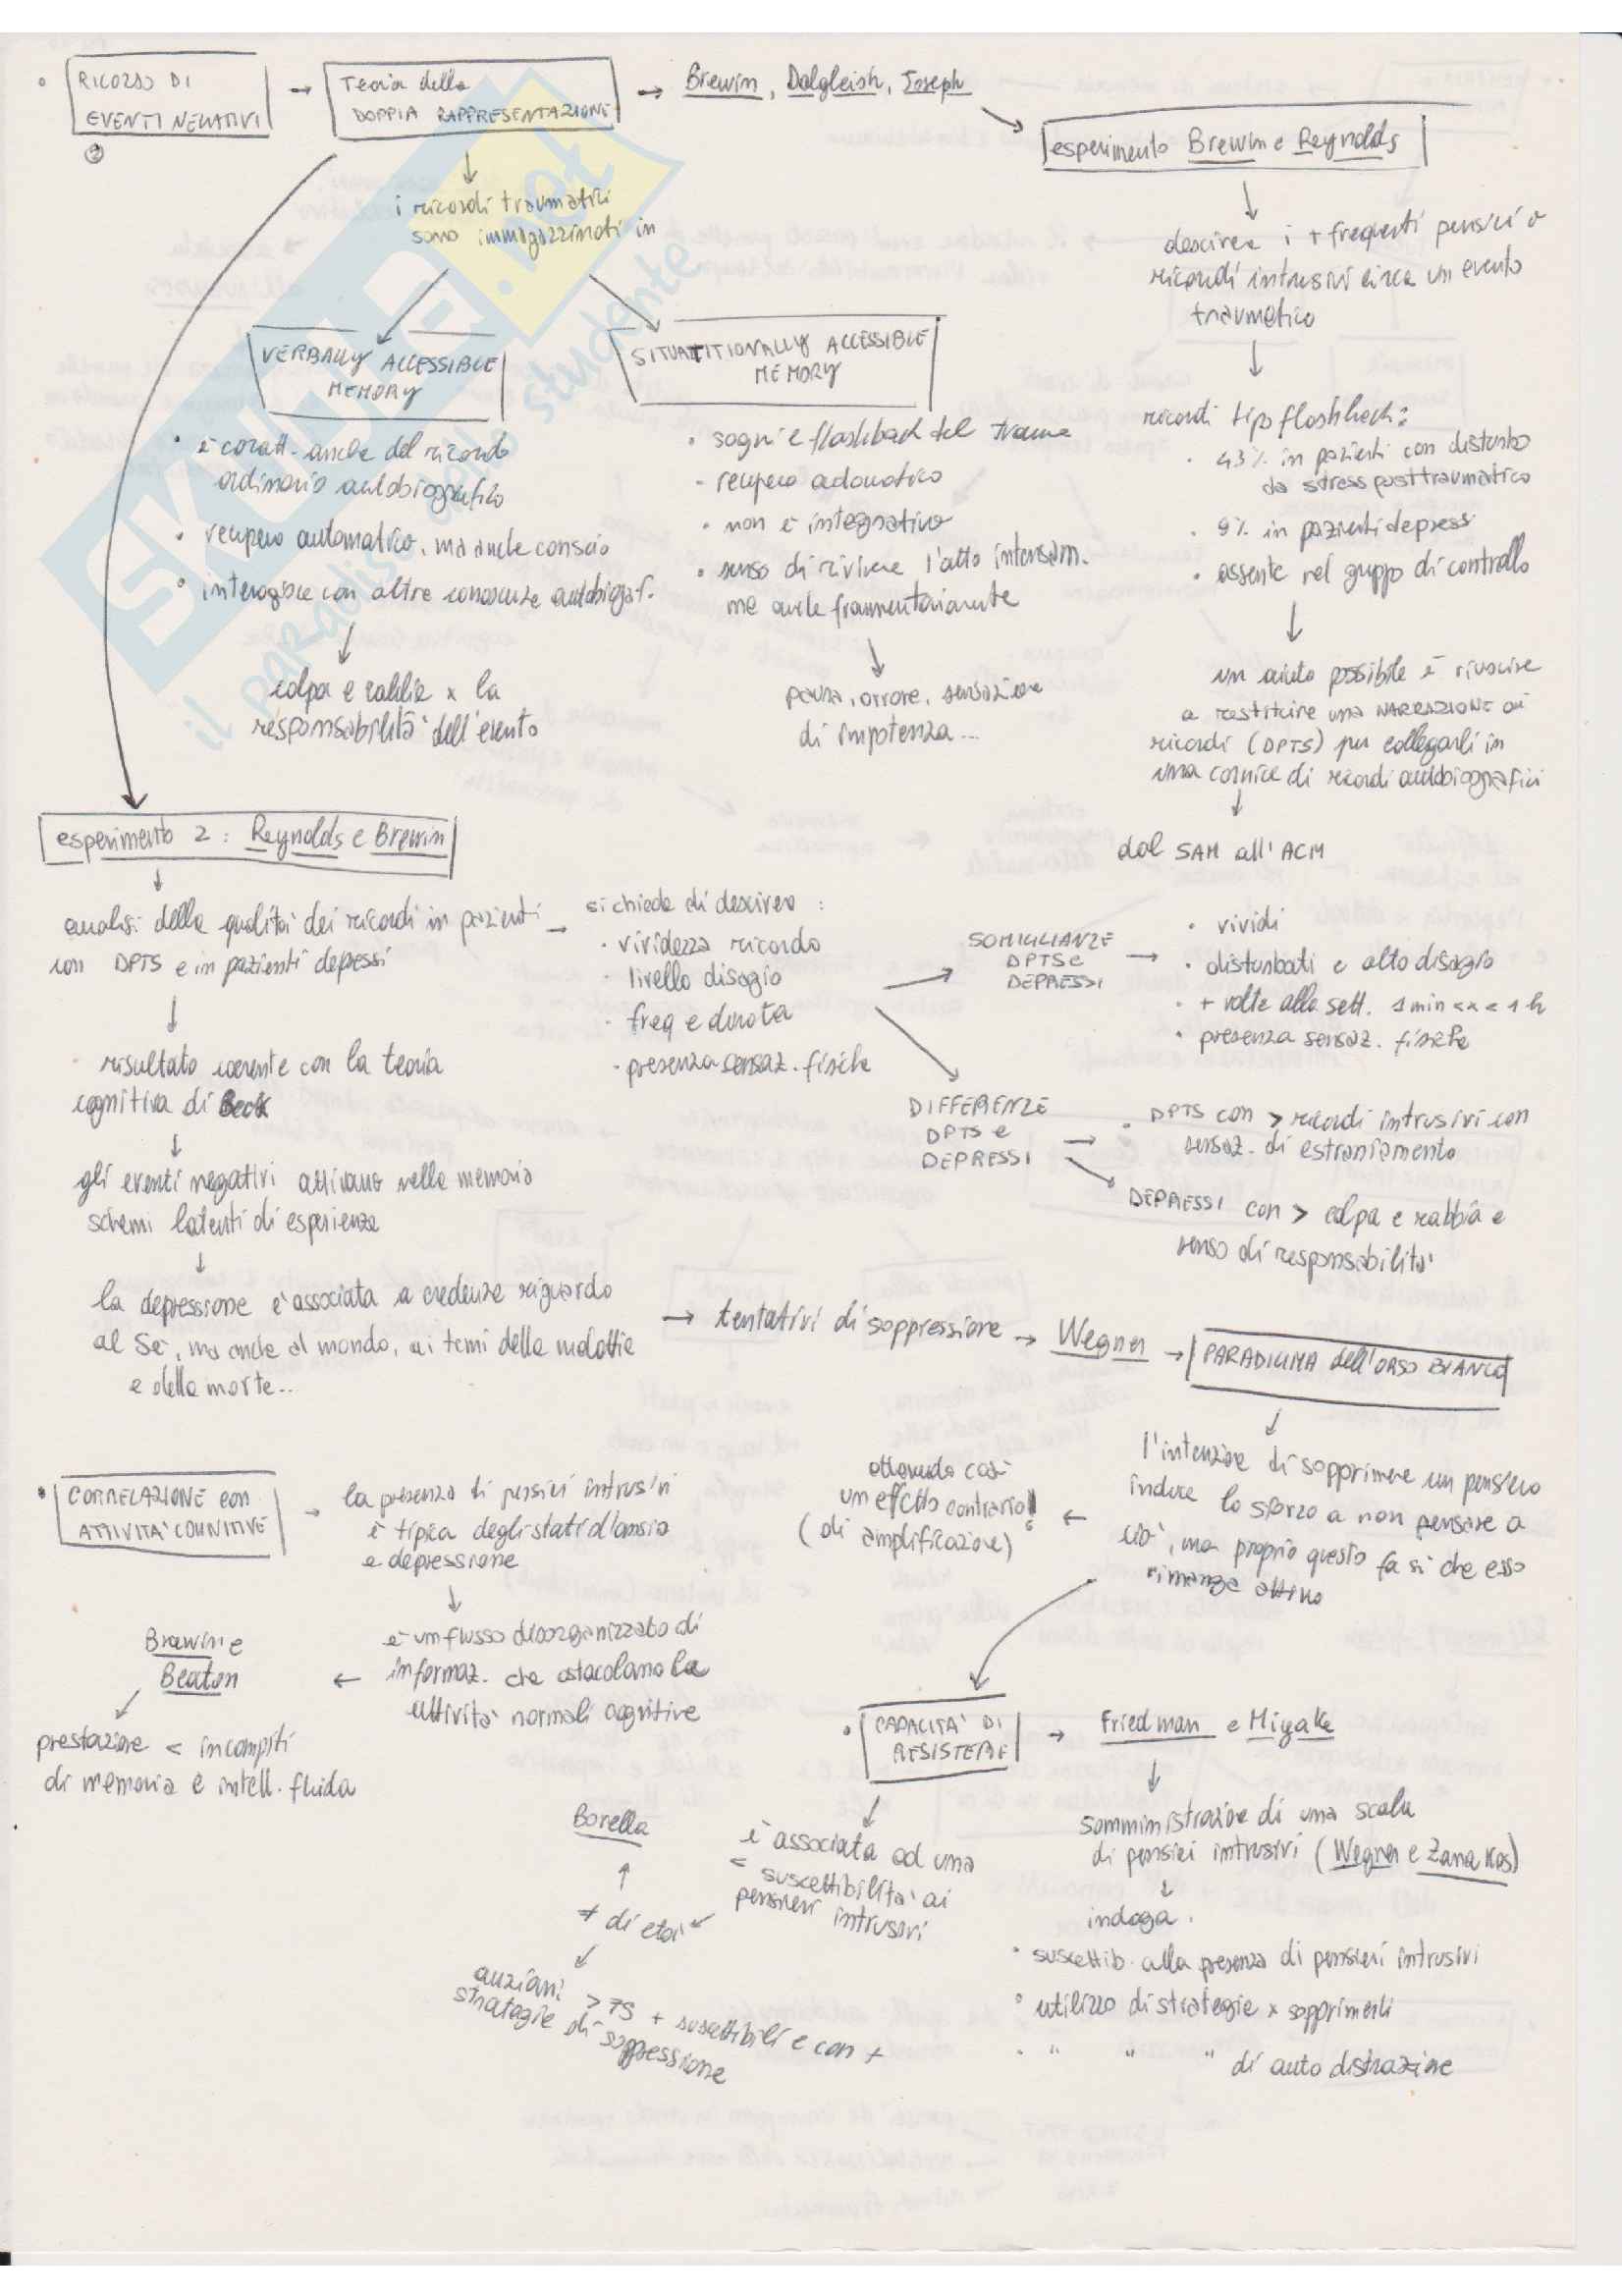 RICORDO DI
EVENTI NEGATIVI
②
Teoria della
DOPPIA RAPPRESENTAZIONE
Brewin, Dalgleish, Joseph
esperimento Brewin e Reynolds
descrivere i + frequenti pensieri o
ricordi intrusivi circa un evento
traumatico
ricordi tipo flashback:
43% in pazienti con disturbo
da stress posttraumatico
9% in pazienti depressi
assente nel gruppo di controllo
un aiuto possibile è riuscire
a restituire una NARRAZIONE ai
ricordi (DPTS) per collegarli in
una cornice di ricordi autobiografici
dal SAM all'ACM
i ricordi traumatici
sono immagazzinati in
VERBALLY ACCESSIBLE
MEMORY
è caratt. anche del ricordo
ordinario autobiografico
recupero automatico, ma anche conscio
interagisce con altre conoscenze autobiograf.
colpa e rabbia x la
responsabilità dell'evento
SITUATITIONALLY ACCESSIBLE
MEMORY
sogni e flashback del trauma
recupero automatico
non è integrativo
senso di rivivere l'atto intensam.
ma anche frammentariamente
paura, orrore, sensazione
di impotenza...
esperimento 2: Reynolds e Brewin
analisi della qualità dei ricordi in pazienti
con DPTS e in pazienti depressi
si chiede di descrivere :
vividezza ricordo
livello disagio
freq e durata
presenza sensaz. fisiche
SOMIGLIANZE
DPTS e
DEPRESSI
vividi
disturbati e alto disagio
+ volte alla sett. 1 min < x < 1 h
presenza sensaz. fisiche
DIFFERENZE
DPTS e
DEPRESSI
DPTS con > ricordi intrusivi con
sensaz. di estraniamento
DEPRESSI con > colpa e rabbia e
senso di responsabilità
risultato coerente con la teoria
cognitiva di Beck
gli eventi negativi attivano nella memoria
schemi latenti di esperienza
la depressione è associata a credenze riguardo
al Sé, ma anche al mondo, ai temi della malattia
e della morte...
tentativi di soppressione
Wegner
PARADIGMA dell'ORSO BIANCO
l'intenzione di sopprimere un pensiero
induce lo sforzo a non pensare a
ciò, ma proprio questo fa sì che esso
rimanga attivo
ottenendo così
un effetto contrario!
(di amplificazione)
CORRELAZIONE con
ATTIVITA' COGNITIVE
la presenza di pensieri intrusivi
è tipica degli stati d'ansia
e depressione
è un flusso disorganizzato di
informaz. che ostacolano le
attività normali cognitive
Brewin e
Beaton
prestazione < in compiti
di memoria e intell. fluida
CAPACITA' DI
RESISTERE
Friedman e Miyake
somministrazione di una scala
di pensieri intrusivi (Wegner e Zanakos)
indaga.
suscettib. alla presenza di pensieri intrusivi
utilizzo di strategie x sopprimerli
" " " di auto distrazione
è associata ad una
< suscettibilità ai
pensieri intrusivi
≠ di età
Borella
anziani >75 + suscettibili e con +
strategie di soppressione
SKUOLA.net
il paradiso dello studente